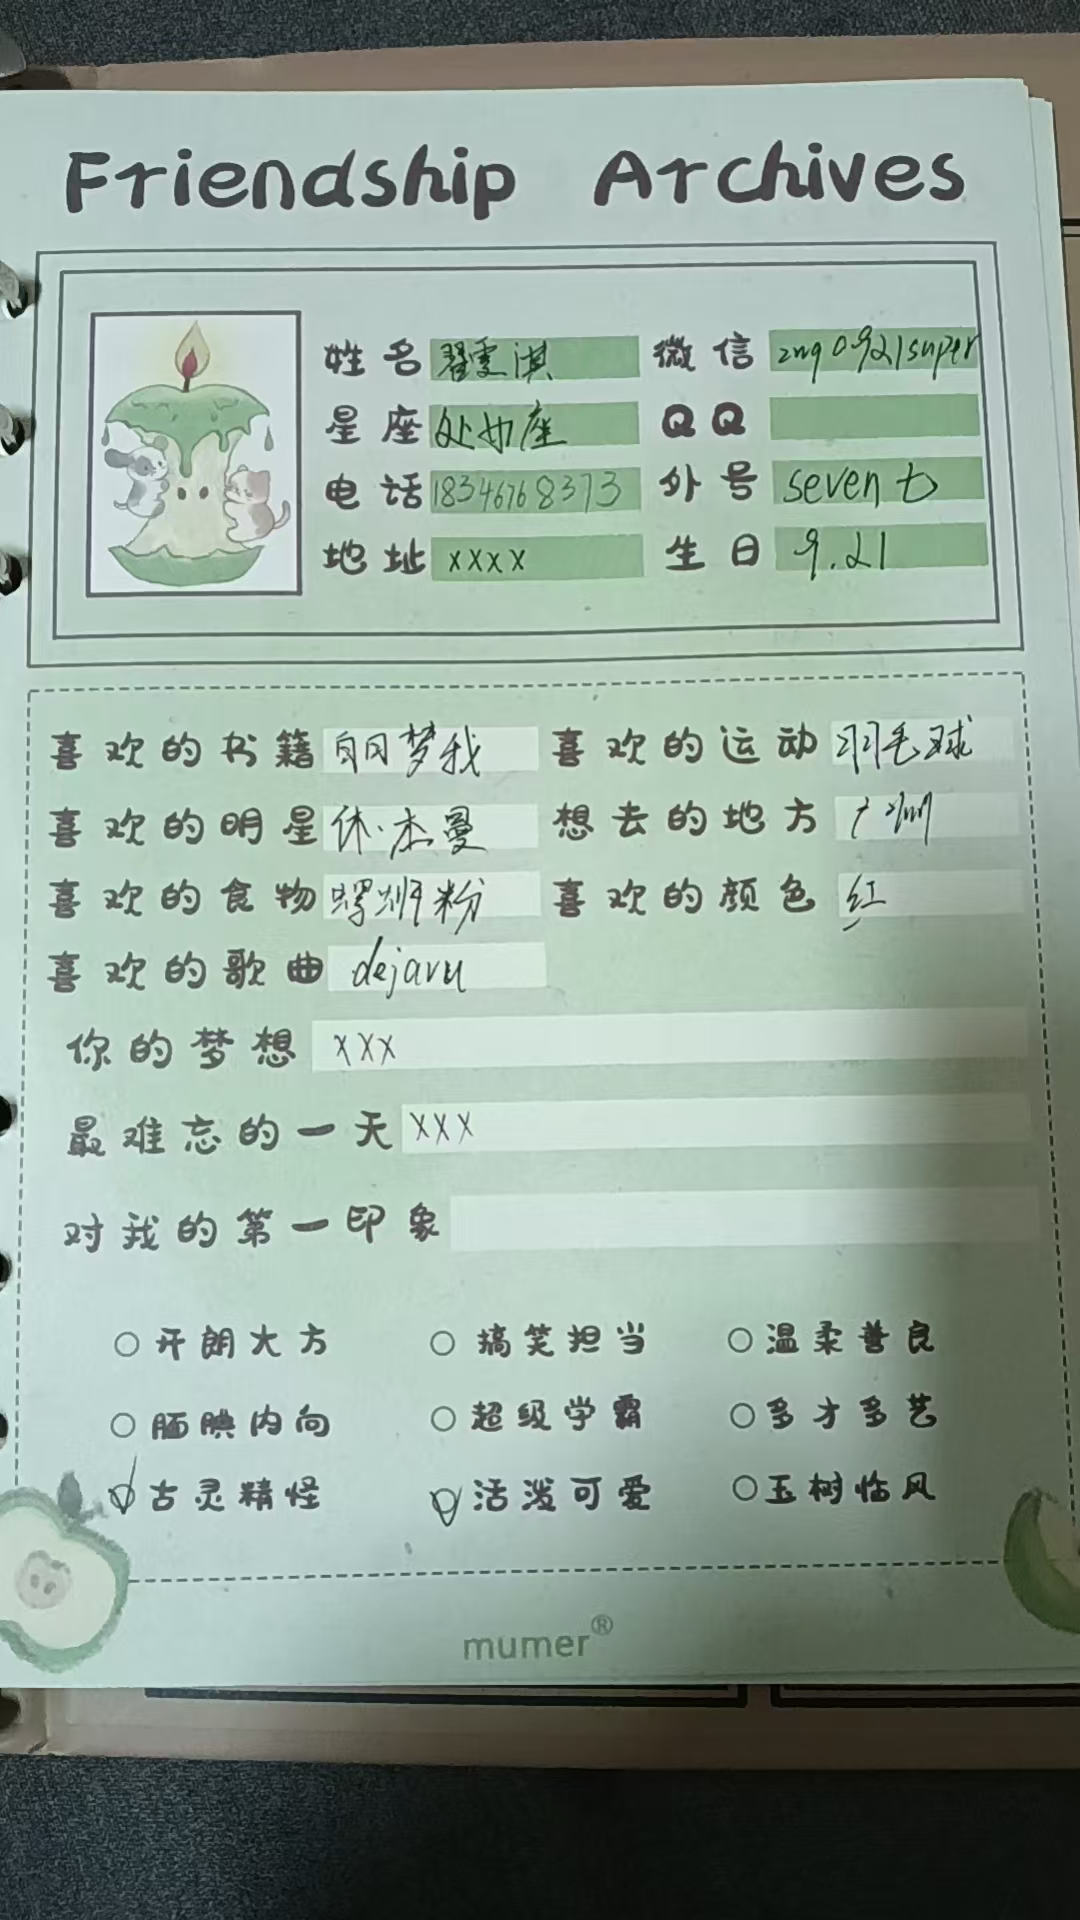 Friendship Archives
姓名 翟雯淇 微信 zwq0921super
星座 处女座 QQ
电话 18346768373 外号 seven七
地址 xxxx 生日 9.21
喜欢的书籍 白日梦我 喜欢的运动 羽毛球
喜欢的明星 休·杰曼 想去的地方 广州
喜欢的食物 螺蛳粉 喜欢的颜色 红
喜欢的歌曲 dejavu
你的梦想 xxx
最难忘的一天 xxx
对我的第一印象
开朗大方 搞笑担当 温柔善良
腼腆内向 超级学霸 多才多艺
古灵精怪 活泼可爱 玉树临风
mumer®